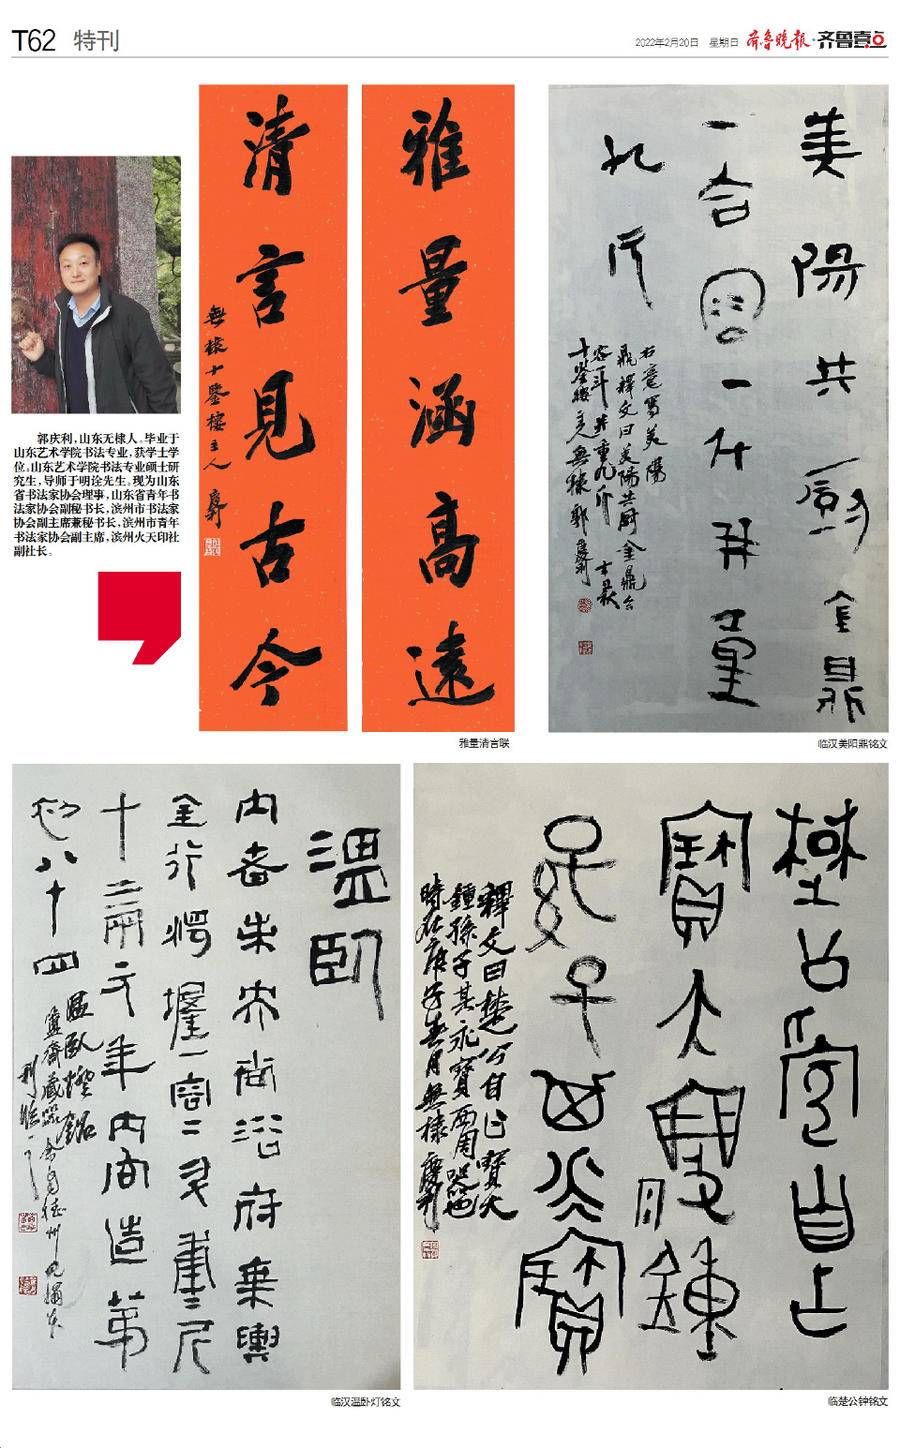 T62 特刊
2022年2月20日 星期日 齐鲁晚报·齐鲁壹点
郭庆利，山东无棣人。毕业于
山东艺术学院书法专业，获学士学
位。山东艺术学院书法专业硕士研
究生，导师于明诠先生。现为山东
省书法家协会理事，山东省青年书
法家协会副秘书长，滨州市书法家
协会副主席兼秘书长，滨州市青年
书法家协会副主席，滨州火天印社
副社长。
雅量涵高遠
清言見古今
無棣十鑒樓主人 慶利
雅量清言联
美陽共廚金鼎
一合容一斗并重
九斤
右臺寫美陽
鼎釋文曰美陽共厨金鼎合
容一斗并重九斤
十鑒樓主無棣郭慶利
临汉美阳鼎铭文
溫卧
內者未央尚浴府乘輿
金行燭鐙一容二升重三斤
十二兩元年內向造第
初八十四
溫臥鐙銘
利臨
临汉温卧灯铭文
楚公自
寶大鐘
孫子其永寶
釋文曰楚公自乍寶大
鐘孫子其永寶西周器也
時在庚子春月無棣慶利
临楚公钟铭文